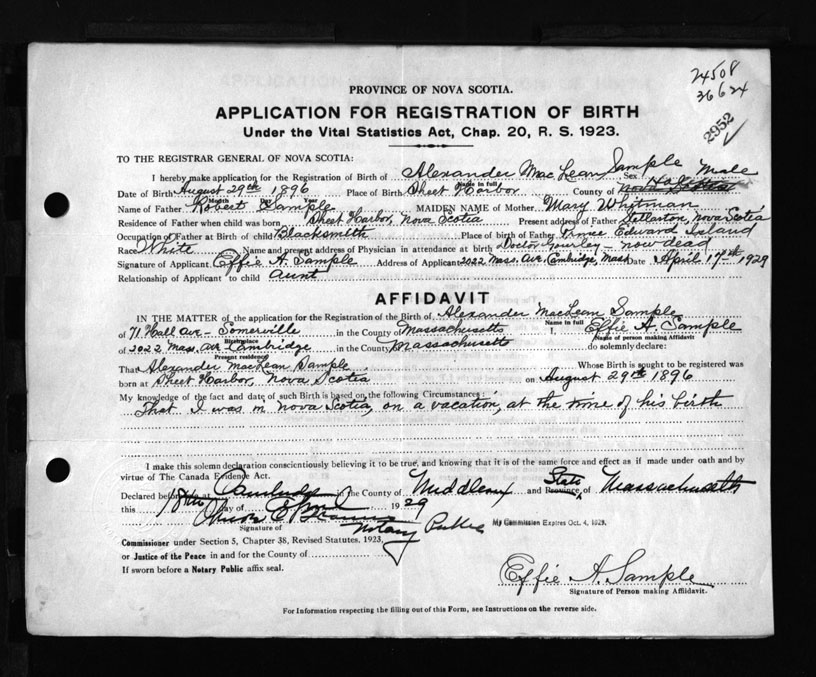 24508
36624
2952
PROVINCE OF NOVA SCOTIA.
APPLICATION FOR REGISTRATION OF BIRTH
Under the Vital Statistics Act, Chap. 20, R. S. 1923.
TO THE REGISTRAR GENERAL OF NOVA SCOTIA:
I hereby make application for the Registration of Birth of Alexander MacLean Sample Sex Male
Name in full
Date of Birth August 29th 1896 Place of Birth Sheet Harbor County of Nova Scotia
Month Day Year
Name of Father Robert Sample MAIDEN NAME of Mother Mary Whitman
Residence of Father when child was born Sheet Harbor, Nova Scotia Present address of Father Stellarton, Nova Scotia
Occupation of Father at Birth of child Blacksmith Place of birth of Father Prince Edward Island
Race White Name and present address of Physician in attendance at birth Doctor - now dead
Signature of Applicant Effie A. Sample Address of Applicant 2022 Mass. Ave. Cambridge, Mass Date April 17th 1929
Relationship of Applicant to child aunt
AFFIDAVIT
IN THE MATTER of the application for the Registration of the Birth of Alexander MacLean Sample
Name in full
of 71 Hall Ave - Somerville in the County of Massachusetts I, Effie A. Sample
Birthplace Name of person making Affidavit
of 2022 Mass. Ave Cambridge in the County Massachusetts do solemnly declare:
Present residence
That Alexander MacLean Sample Whose Birth is sought to be registered was
born at Sheet Harbor, Nova Scotia on August 29th 1896
My knowledge of the fact and date of such Birth is based on the following Circumstances:
That I was in Nova Scotia, on a vacation, at the time of his birth
I make this solemn declaration conscientiously believing it to be true, and knowing that it is of the same force and effect as if made under oath and by
virtue of The Canada Evidence Act.
Declared before me at Cambridge in the County of Middlesex and Province State of Massachusetts
this 18th day of April 1929
Notary Public My Commission Expires Oct. 4, 1929.
Signature of
Commissioner under Section 5, Chapter 38, Revised Statutes, 1923,
or Justice of the Peace in and for the County of
If sworn before a Notary Public affix seal.
Effie A. Sample
Signature of Person making Affidavit.
For Information respecting the filling out of this Form, see Instructions on the reverse side.